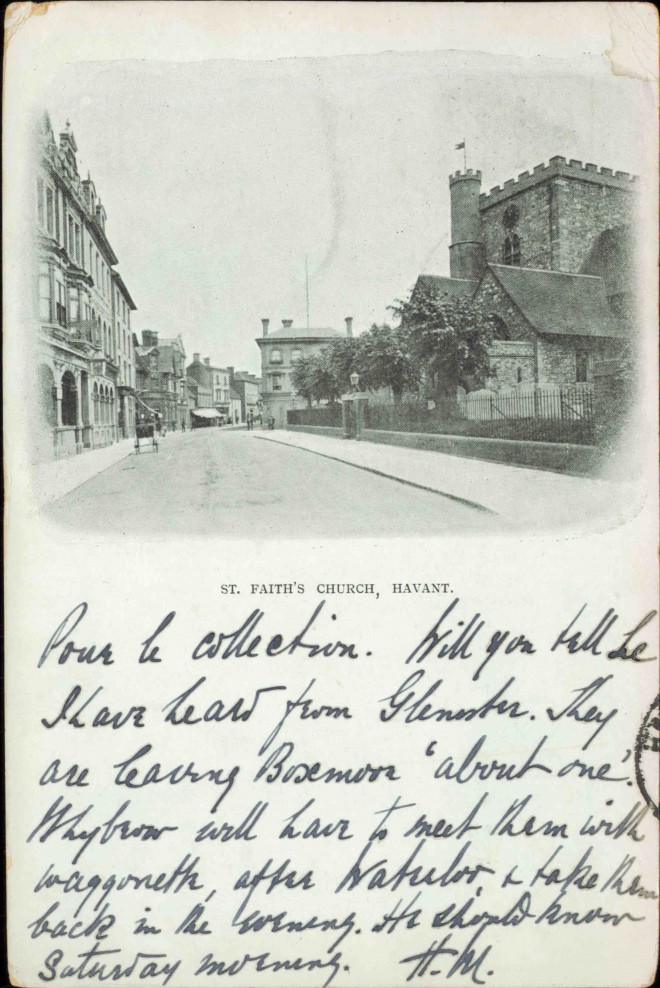 ST. FAITH'S CHURCH, HAVANT.
Pour le collection. Will you tell
I have heard from Glenister. They
are leaving Boxmoor 'about one'.
Whybrow will have to meet them with
waggonette, after Waterloo, & take them
back in the evening. He should know
Saturday morning. H.M.